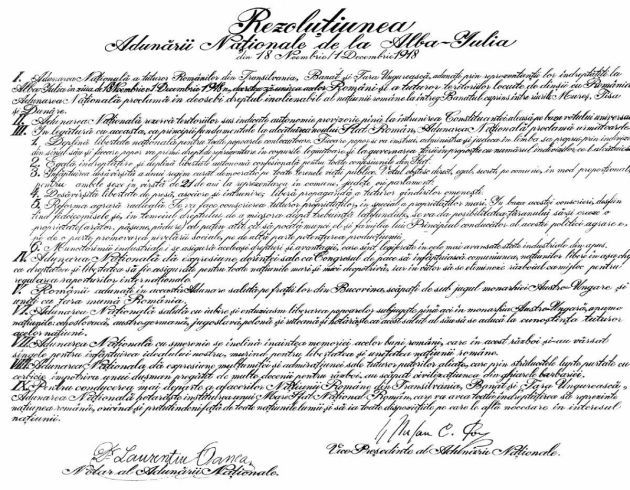 Rezoluțiunea
Adunării Naționale de la Alba-Iulia
din 18 Noembrie/1 Decemvrie 1918
I. Adunarea Națională a tuturor Românilor din Transilvania, Banat și Țara Ungurească, adunați prin reprezentanții lor îndreptățiți la
Alba-Iulia în ziua de 18 Noembrie/1 Decemvrie 1918, decretează unirea acelor Români și a tuturor teritoriilor locuite de dânșii cu România.
Adunarea Națională proclamă îndeosebi dreptul inalienabil al națiunii române la întreg Banatul cuprins între râurile Mureș, Tisa și
Dunăre.
II. Adunarea Națională rezervă teritoriilor sus indicate autonomie provizorie până la întrunirea Constituantei aleasă pe baza votului universal.
III. În legătură cu aceasta, ca principii fundamentale la alcătuirea noului Stat Român, Adunarea Națională proclamă următoarele:
1. Deplină libertate națională pentru toate popoarele conlocuitoare. Fiecare popor se va instrui, administra și judeca în limba sa proprie prin indivizi
din sinul său și fiecare popor va primi drept de reprezentare în corpurile legiuitoare și la guvernarea țării în proporție cu numărul indivizilor ce-l alcătuiesc.
2. Egală îndreptățire și deplină libertate autonomă confesională pentru toate confesiunile din Stat.
3. Înfăptuirea desăvârșită a unui regim curat democratic pe toate terenele vieții publice. Votul obștesc, direct, egal, secret, pe comune, în mod proporțional,
pentru ambele sexe, în vârstă de 21 de ani la reprezentarea în comune, județe ori parlament.
4. Desăvârșită libertate de presă, asociere și întrunire; libera propagandă a tuturor gândurilor omenești.
5. Reforma agrară radicală. Se va face conscrierea tuturor proprietăților, în special a proprietăților mari. În baza acestei conscrieri, desființând
fideicomisele și în temeiul dreptului de a micșora după trebuință latifundiile, se va da posibilitatea țăranului să-și creeze o
proprietate (arător, pășune, pădure) cel puțin atât cât să poată munci el și familia lui. Principiul conducător al acestei politici agrare e
pe de o parte promovarea nivelării sociale, pe de altă parte potențarea producțiunii.
6. Muncitorimei industriale i se asigură aceleași drepturi și avantagii, care sunt legiferate în cele mai avansate state industriale din apus.
IV. Adunarea Națională dă expresiune dorinței sale, ca Congresul de pace să înfăptuiască comuniunea națiunilor libere în așa chip,
ca dreptatea și libertatea să fie asigurate pentru toate națiunile mari și mici deopotrivă, iar în viitor să se elimineze războiul ca mijloc pentru
regularea raporturilor internaționale.
V. Românii adunați în această Adunare salută pe frații lor din Bucovina, scăpați de sub jugul monarhiei Austro-Ungare și
uniți cu țara mamă România.
VI. Adunarea Națională salută cu iubire și entuziasm liberarea popoarelor subjugate până aci în monarhia Austro-Ungară, anume
națiunile: cehoslovacă, austrogermană, jugoslavă, polonă și ruteană și hotărăște ca acest salut al său să se aducă la cunoștința tuturor
acelor națiuni.
VII. Adunarea Națională cu smerenie se închină înaintea memoriei acelor bravi români, care în acest război și-au vărsat
sângele pentru înfăptuirea idealului nostru, murind pentru libertatea și unitatea națiunii române.
VIII. Adunarea Națională dă expresiune mulțumirei și admirațiunei sale tuturor puterilor aliate, care prin strălucitele lupte purtate cu
cerbicie împotriva unui dușman pregătit de multe decenii pentru război, au scăpat civilizațiunea din ghiarele barbariei.
IX. Pentru conducerea mai departe a afacerilor Națiunii Române din Transilvania, Banat și Țara Ungurească,
Adunarea Națională hotărăște instituirea unui Mare Sfat Național Român, care va avea toată îndreptățirea să reprezinte
națiunea română oricând și pretutindeni față de toate națiunile lumii și să ia toate dispozițiile pe care le află necesare în interesul
națiunii.
Laurențiu Oanea
Notar al Adunării Naționale.
Ștefan C. Pop
Vice Președinte al Adunării Naționale.